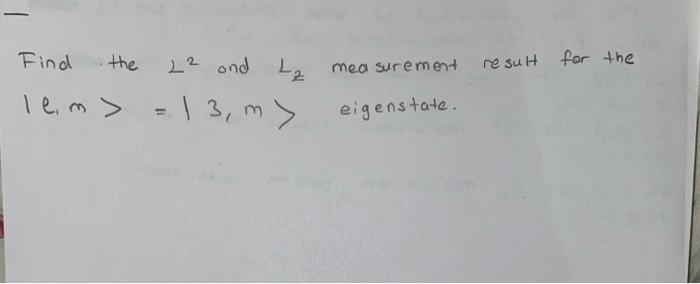 Find the L² and L_z measurement result for the
|l, m > = | 3, m > eigenstate.